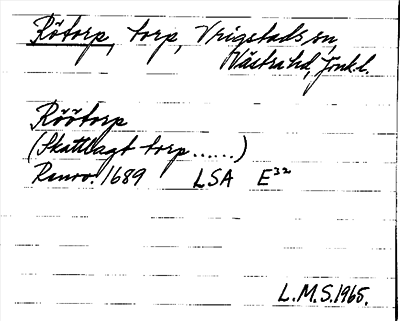 Rötorp, torp, Vrigstads sn,
Västra hd, Jönk.l.
Röötorp
(Skattlagt torp......)
Renov. 1689 LSA E³²
L.M.S.1965.